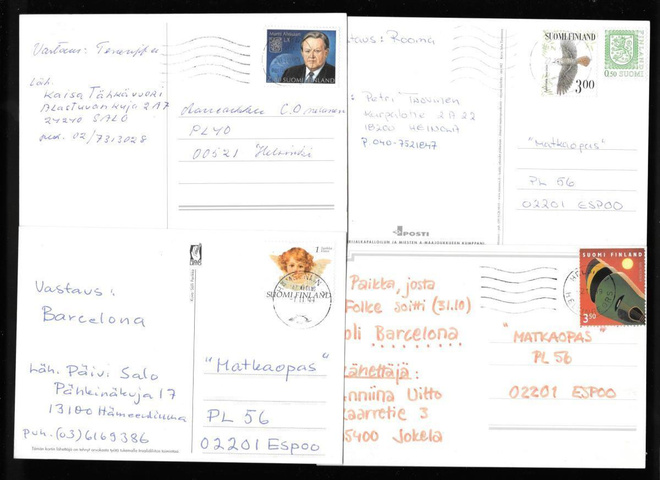 Vastaus: Teneriffa
Läh.
Kaisa Tähkävuori
24240 SALO
puh. 02/7313028
Martti Ahtisaari
2,8
SUOMI FINLAND
C.O
PL 40
00521 Helsinki
astaus: Rooma
SUOMI FINLAND
3,00
0,50 SUOMI
: Petri
2 A 22
18200 HEINOLA
P 040-7521847
"Matkaopas"
PL 56
02201 ESPOO
POSTI
Vastaus:
Barcelona
Läh. Päivi Salo
Pähkinäkuja 17
13100 Hämeenlinna
puh. (03)6169386
1
SUOMI FINLAND
"Matkaopas"
PL 56
02201 ESPOO
Paikka, josta
Folke soitti (31.10)
oli Barcelona
Lähettäjä:
nniina Uitto
aarretie 3
5400 Jokela
SUOMI FINLAND
3,50
"MATKAOPAS"
PL 56
02201 ESPOO